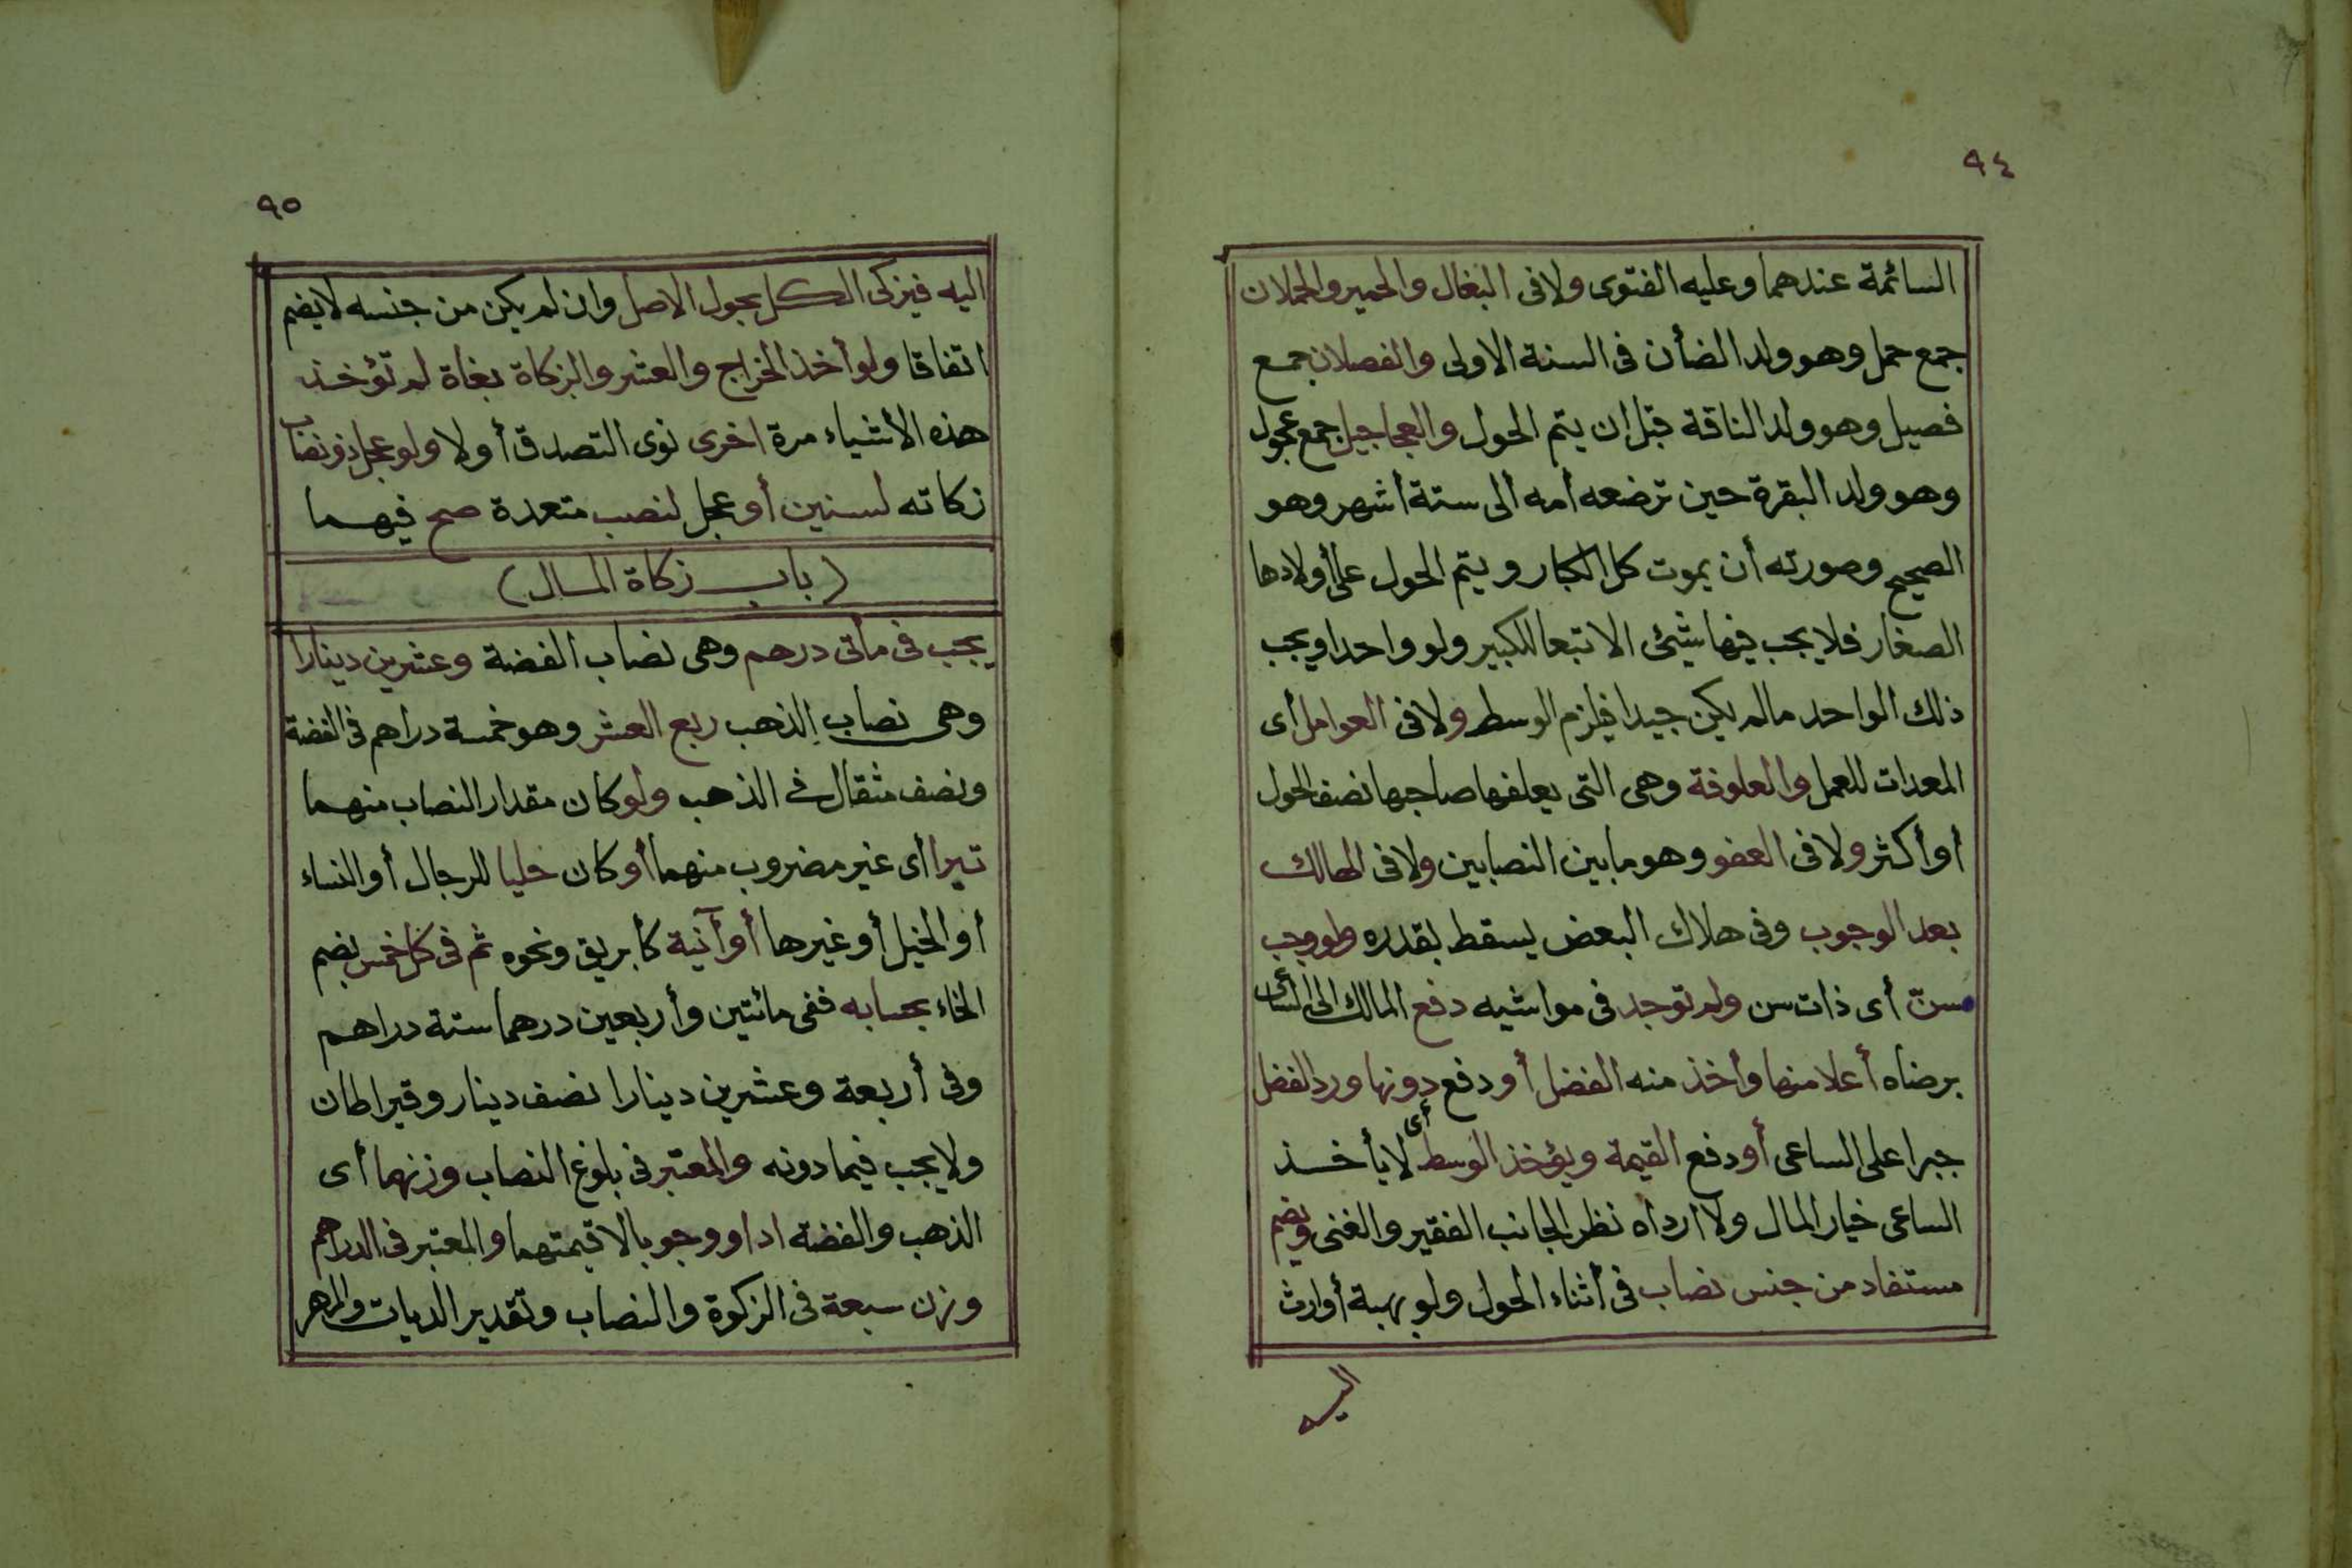 ٩٤
السائمة عندهما وعليه الفتوى ولا فى البغال والحمير والحملان
جمع حمل وهو ولد الضأن فى السنة الاولى والفصلان جمع
فصيل وهو ولد الناقة قبل ان يتم الحول والعجاجيل جمع عجول
وهو ولد البقرة حين ترضعه امه الى ستة أشهر وهو
الصحيح وصورته أن يموت كل الكبار ويتم الحول على أولادها
الصغار فلا يجب فيها شيئى الا تبعا للكبير ولو واحدا ويجب
ذلك الواحد مالم يكن جيدا فيلزم الوسط ولا فى العوامل أى
المعدات للعمل والعلوفة وهى التى يعلفها صاحبها نصف الحول
أو أكثر ولا فى العفو وهو ما بين النصابين ولا فى الهالك
بعد الوجوب وفى هلاك البعض يسقط بقدره ولو وجب
مسنّ أى ذات سن ولم توجد فى مواشيه دفع المالك الى
برضاه أعلا منها وأخذ منه الفضل أو دفع دونها ورد الفضل
جبرا على الساعى أو دفع القيمة ويؤخذ الوسط أى لا يأخذ
الساعى خيار المال ولا ارداه نظر الجانب الفقير والغنى ويضم
مستفاد من جنس نصاب فى أثناء الحول ولو بهبة أو ارث
اليه
٩٥
اليه فيزكى الكل بحول الاصل وان لم يكن من جنسه لا يضم
اتفاقا ولو أخذ الخراج والعشر والزكاة بغاة لم تؤخذ
هذه الأشياء مرة اخرى نوى التصدق أو لا ولو عجل ذو نصاب
زكاته لسنين أو عجل لنصب متعددة صح فيهما
(باب زكاة المال)
يجب فى مأتى درهم وهى نصاب الفضة وعشرين دينارا
وهى نصاب الذهب ربع العشر وهو خمسة دراهم فى الفضة
ونصف مثقال فى الذهب ولو كان مقدار النصاب منهما
تبرا أى غير مضروب منهما أو كان حليا للرجال أو النساء
أو الخيل أو غيرها أو آنية كأبريق ونحوه ثم فى كل خمس بضم
الخاء بحسابه ففى مائتين وأربعين درهما ستة دراهم
وفى أربعة وعشرين دينارا نصف دينار وقيراطان
ولا يجب فيما دونه والمعتبر فى بلوغ النصاب وزنهما أى
الذهب والفضة اداو ووجوبا لا قيمتهما والمعتبر فى الدراهم
وزن سبعة فى الزكوة والنصاب وتقدير الديات والمهر